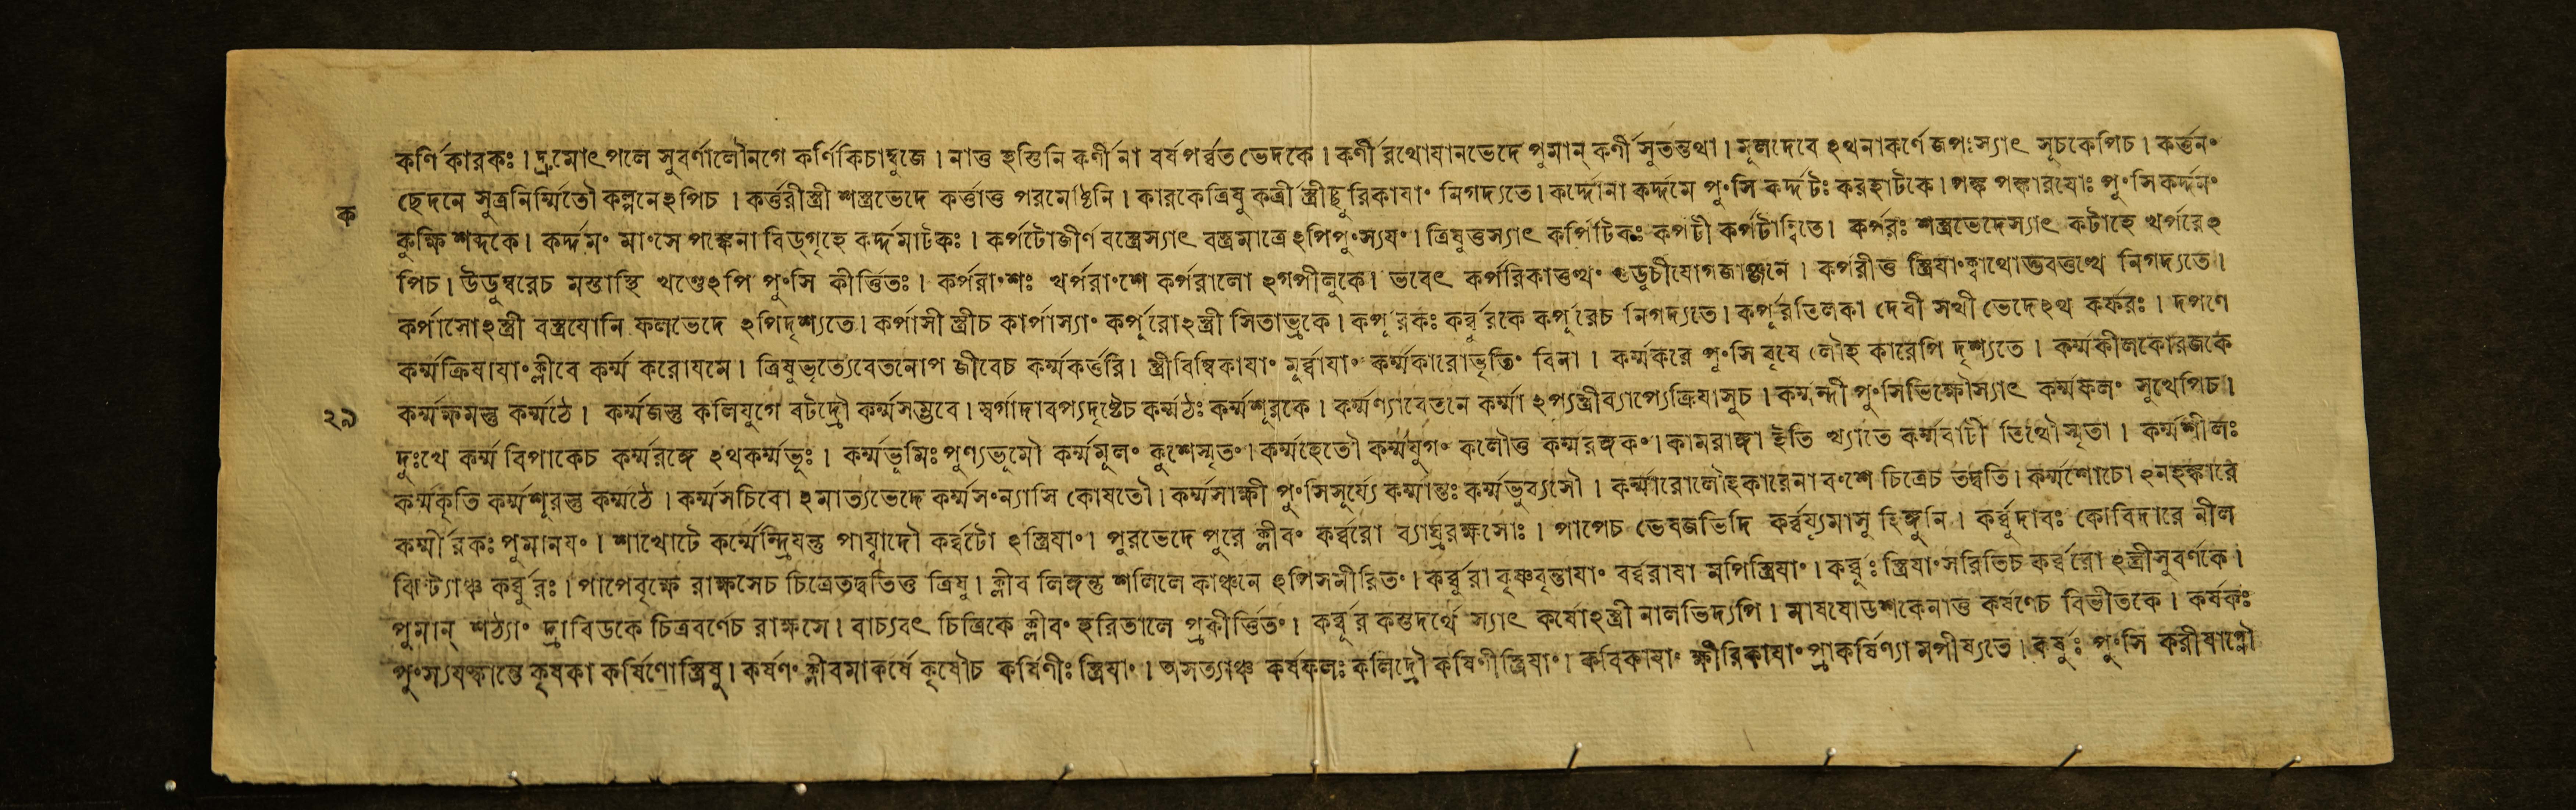 কর্ণিকারকঃ। দ্রুমোৎপলে সুবর্ণালৌনগে কর্ণিকিচাম্বুজে। নাত্ত হস্তিনি কর্ণীনা বর্ষপর্ব্বত ভেদকে। কর্ণীরথোযানভেদে পুমান্ কর্ণীসুতস্তথা। মূলদেবে ঽথনাকর্ণে জপঃস্যাৎ সূচকেপিচ। কর্ত্তনং
ছেদনে সুত্রনির্ম্মিতৌ কল্পনেঽপিচ। কর্ত্তরীস্ত্রী শস্ত্রভেদে কর্ত্তাত্ত পরমেষ্ঠিনি। কারকেত্রিষু কর্ত্রী স্ত্রীছুরিকাযাং নিগদ্যতে। কর্দ্দোনা কর্দ্দমে পুংসি কর্দ্দটঃ করহাটকে। পঙ্ক পঙ্কারযোঃ পুংসি কর্দ্দনং
ক
কুক্ষি শব্দকে। কর্দ্দমং মাংসে পঙ্কেনা বিড্‌গৃহে কর্দ্দমাটকঃ। কর্পটোজীর্ণ বস্ত্রেস্যাৎ বস্ত্রমাত্রেঽপিপুংস্যযং। ত্রিষুত্তস্যাৎ কর্পিটিকঃ কর্পটী কর্পটান্বিতে। কর্পরঃ শস্ত্রভেদেস্যাৎ কটাহে খর্পরেঽ
পিচ। উডুম্বরেচ মস্তাস্থি খণ্ডেঽপি পুংসি কীর্ত্তিতঃ। কর্পরাংশঃ খর্পরাংশে কর্পরালো ঽগপীলুকে। ভবেৎ কর্পরিকাত্তত্থং গুডূচীযোগজাঞ্জনে। কর্পরীত্ত স্ত্রিযাংক্বাথোদ্ভবত্তত্থে নিগদ্যতে।
কর্পাসোঽস্ত্রী বস্ত্রযোনি ফলভেদে ঽপিদৃশ্যতে। কর্পাসী স্ত্রীচ কার্পাস্যাং কর্পূরোঽস্ত্রী সিতাভ্রকে। কর্পূরকঃ কর্ব্বূরকে কর্পূরেচ নিগদ্যতে। কর্পূরতিলকা দেবী সখী ভেদেঽথ কর্ফরঃ। দর্পণে
কর্ম্মক্রিযাযাংক্লীবে কর্ম্ম করোযমে। ত্রিষুভৃত্যেবেতনোপ জীবেচ কর্ম্মকর্ত্তরি। স্ত্রীবিম্বিকাযাং মূর্ব্বাযাং কর্ম্মকারোভৃতিং বিনা। কর্ম্মকরে পুংসি বৃষে লৌহ কারেপি দৃশ্যতে। কর্ম্মকীলকোরজকে
২৯ কর্ম্মক্ষমস্তু কর্ম্মঠে। কর্ম্মজস্তু কলিযুগে বটদ্রৌ কর্ম্মসম্ভবে। স্বর্গাদাবপ্যদৃষ্টেচ কর্ম্মঠঃ কর্ম্মশূরকে। কর্ম্মণ্যাবেতনে কর্ম্মা ঽপ্যস্ত্রীব্যাপ্যেক্রিযাসুচ। কর্ম্মন্দী পুংসিভিক্ষৌস্যাৎ কর্ম্মফলং সুখেপিচ।
দুঃখে কর্ম্ম বিপাকেচ কর্ম্মরঙ্গে ঽথকর্ম্মভূঃ। কর্ম্মভূমিঃপুণ্যভূমৌ কর্ম্মমূলং কুশেস্মৃতং। কর্ম্মহেতৌ কর্ম্মযুগং কলৌত্ত কর্ম্মরঙ্গকং। কামরাঙ্গা ইতি খ্যাতে কর্ম্মবাটী তিথৌস্মৃতা। কর্ম্মশীলঃ
কর্ম্মকৃতি কর্ম্মশূরস্তু কর্ম্মঠে। কর্ম্মসচিবো ঽমাত্যভেদে কর্ম্মসংন্যাসি কোষতৌ। কর্ম্মসাক্ষী পুংসিসূর্য্যে কর্ম্মান্তঃ কর্ম্মভুব্যসৌ। কর্ম্মারোলৌহকারেনা বংশে চিত্রেচ তদ্বতি। কর্ম্মশোচো ঽনহঙ্কারে
কর্ম্মীরকঃ পুমানযং। শাখোটে কর্ম্মেন্দ্রিযন্তু পায্বাদৌ কর্ব্বটো ঽস্ত্রিযাং। পুরভেদে পুরে ক্লীবং কর্ব্বরো ব্যাঘ্ররক্ষসোঃ। পাপেচ ভেষজভিদি কর্ব্বর্য্যুমাসু হিঙ্গুনি। কর্ব্বুদাবঃ কোবিদারে নীল
ঝিণ্ট্যাঞ্চ কর্ব্বুরঃ। পাপেবৃক্ষে রাক্ষসেচ চিত্রেতদ্বতিত্ত ত্রিষু। ক্লীব লিঙ্গন্তু শলিলে কাঞ্চনে ঽপিসমীরিতং। কর্ব্বুরা কৃষ্ণবৃন্তাযাং বর্ব্বরাযা মপিস্ত্রিযাং। কর্ব্বুঃ স্ত্রিযাংসরিতিচ কর্ব্বরো ঽস্ত্রীসুবর্ণকে।
পুমান্ শঠ্যাং দ্রাবিডকে চিত্রবর্ণেচ রাক্ষসে। বাচ্যবৎ চিত্রিকে ক্লীবং হরিতালে প্রকীর্ত্তিতং। কর্ব্বূর কস্তদর্থে স্যাৎ কর্ষোঽস্ত্রী নালভিদ্যপি। মাষষোডশকেনাত্ত কর্ষণেচ বিভীতকে। কর্ষকঃ
পুংস্যযস্কান্তে কৃষকা কর্ষিণোস্ত্রিষু। কর্ষণং ক্লীবমাকর্ষে কৃষৌচ কর্ষিণীঃ স্ত্রিযাং। অসত্যাঞ্চ কর্ষফলঃ কলিদ্রৌ কর্ষিণীস্ত্রিযাং। কবিকাযাং ক্ষীরিকাযাং প্রাকর্ষিণ্যা মপীষ্যতে। কর্ষুঃ পুংসি করীষাগ্নৌ